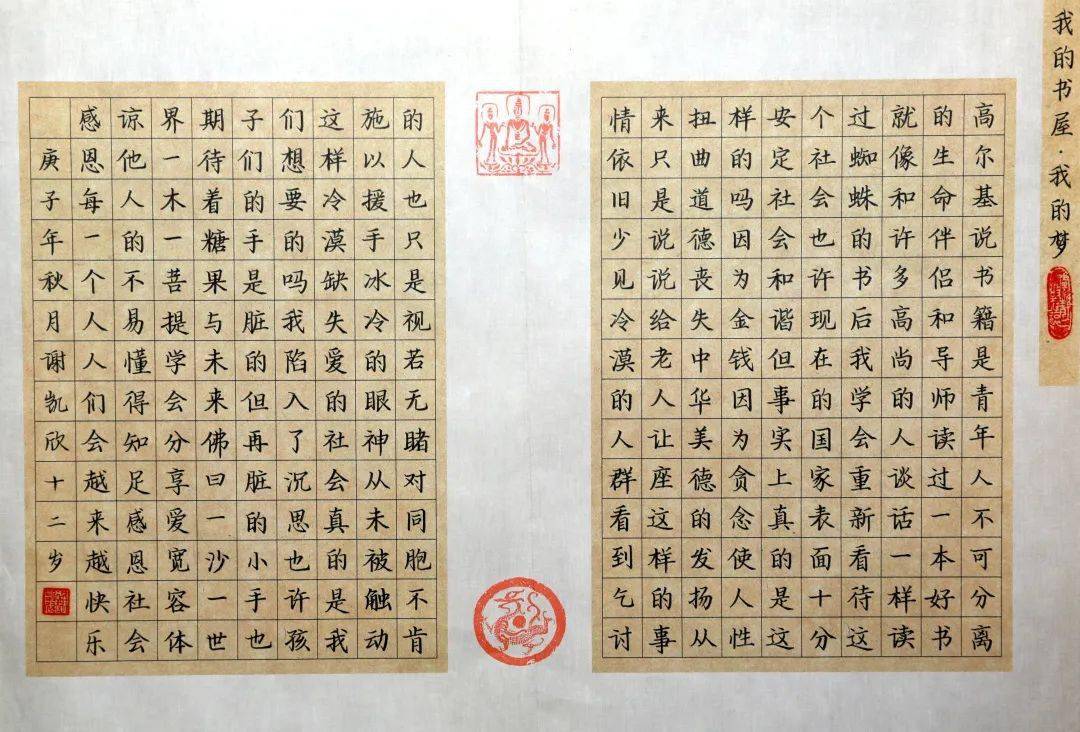 我的书屋·我的梦
高尔基说书籍是青年人不可分离
的生命伴侣和导师读过一本好书
就像和许多高尚的人谈话一样读
过蜘蛛的书后我学会重新看待这
个社会也许现在的国家表面十分
安定社会和谐但事实上真的是这
样的吗因为金钱因为贪念使人性
扭曲道德丧失中华美德的发扬从
来只是说说给老人让座这样的事
情依旧少见冷漠的人群看到乞讨
的人也只是视若无睹对同胞不肯
施以援手冰冷的眼神从未被触动
这样冷漠缺失爱的社会真的是我
们想要的吗我陷入了沉思也许孩
子们的手是脏的但再脏的小手也
期待着糖果与未来佛曰一沙一世
界一木一菩提学会分享爱宽容体
谅他人的不易懂得知足感恩社会
感恩每一个人人们会越来越快乐
庚子年秋月谢凯欣十二岁